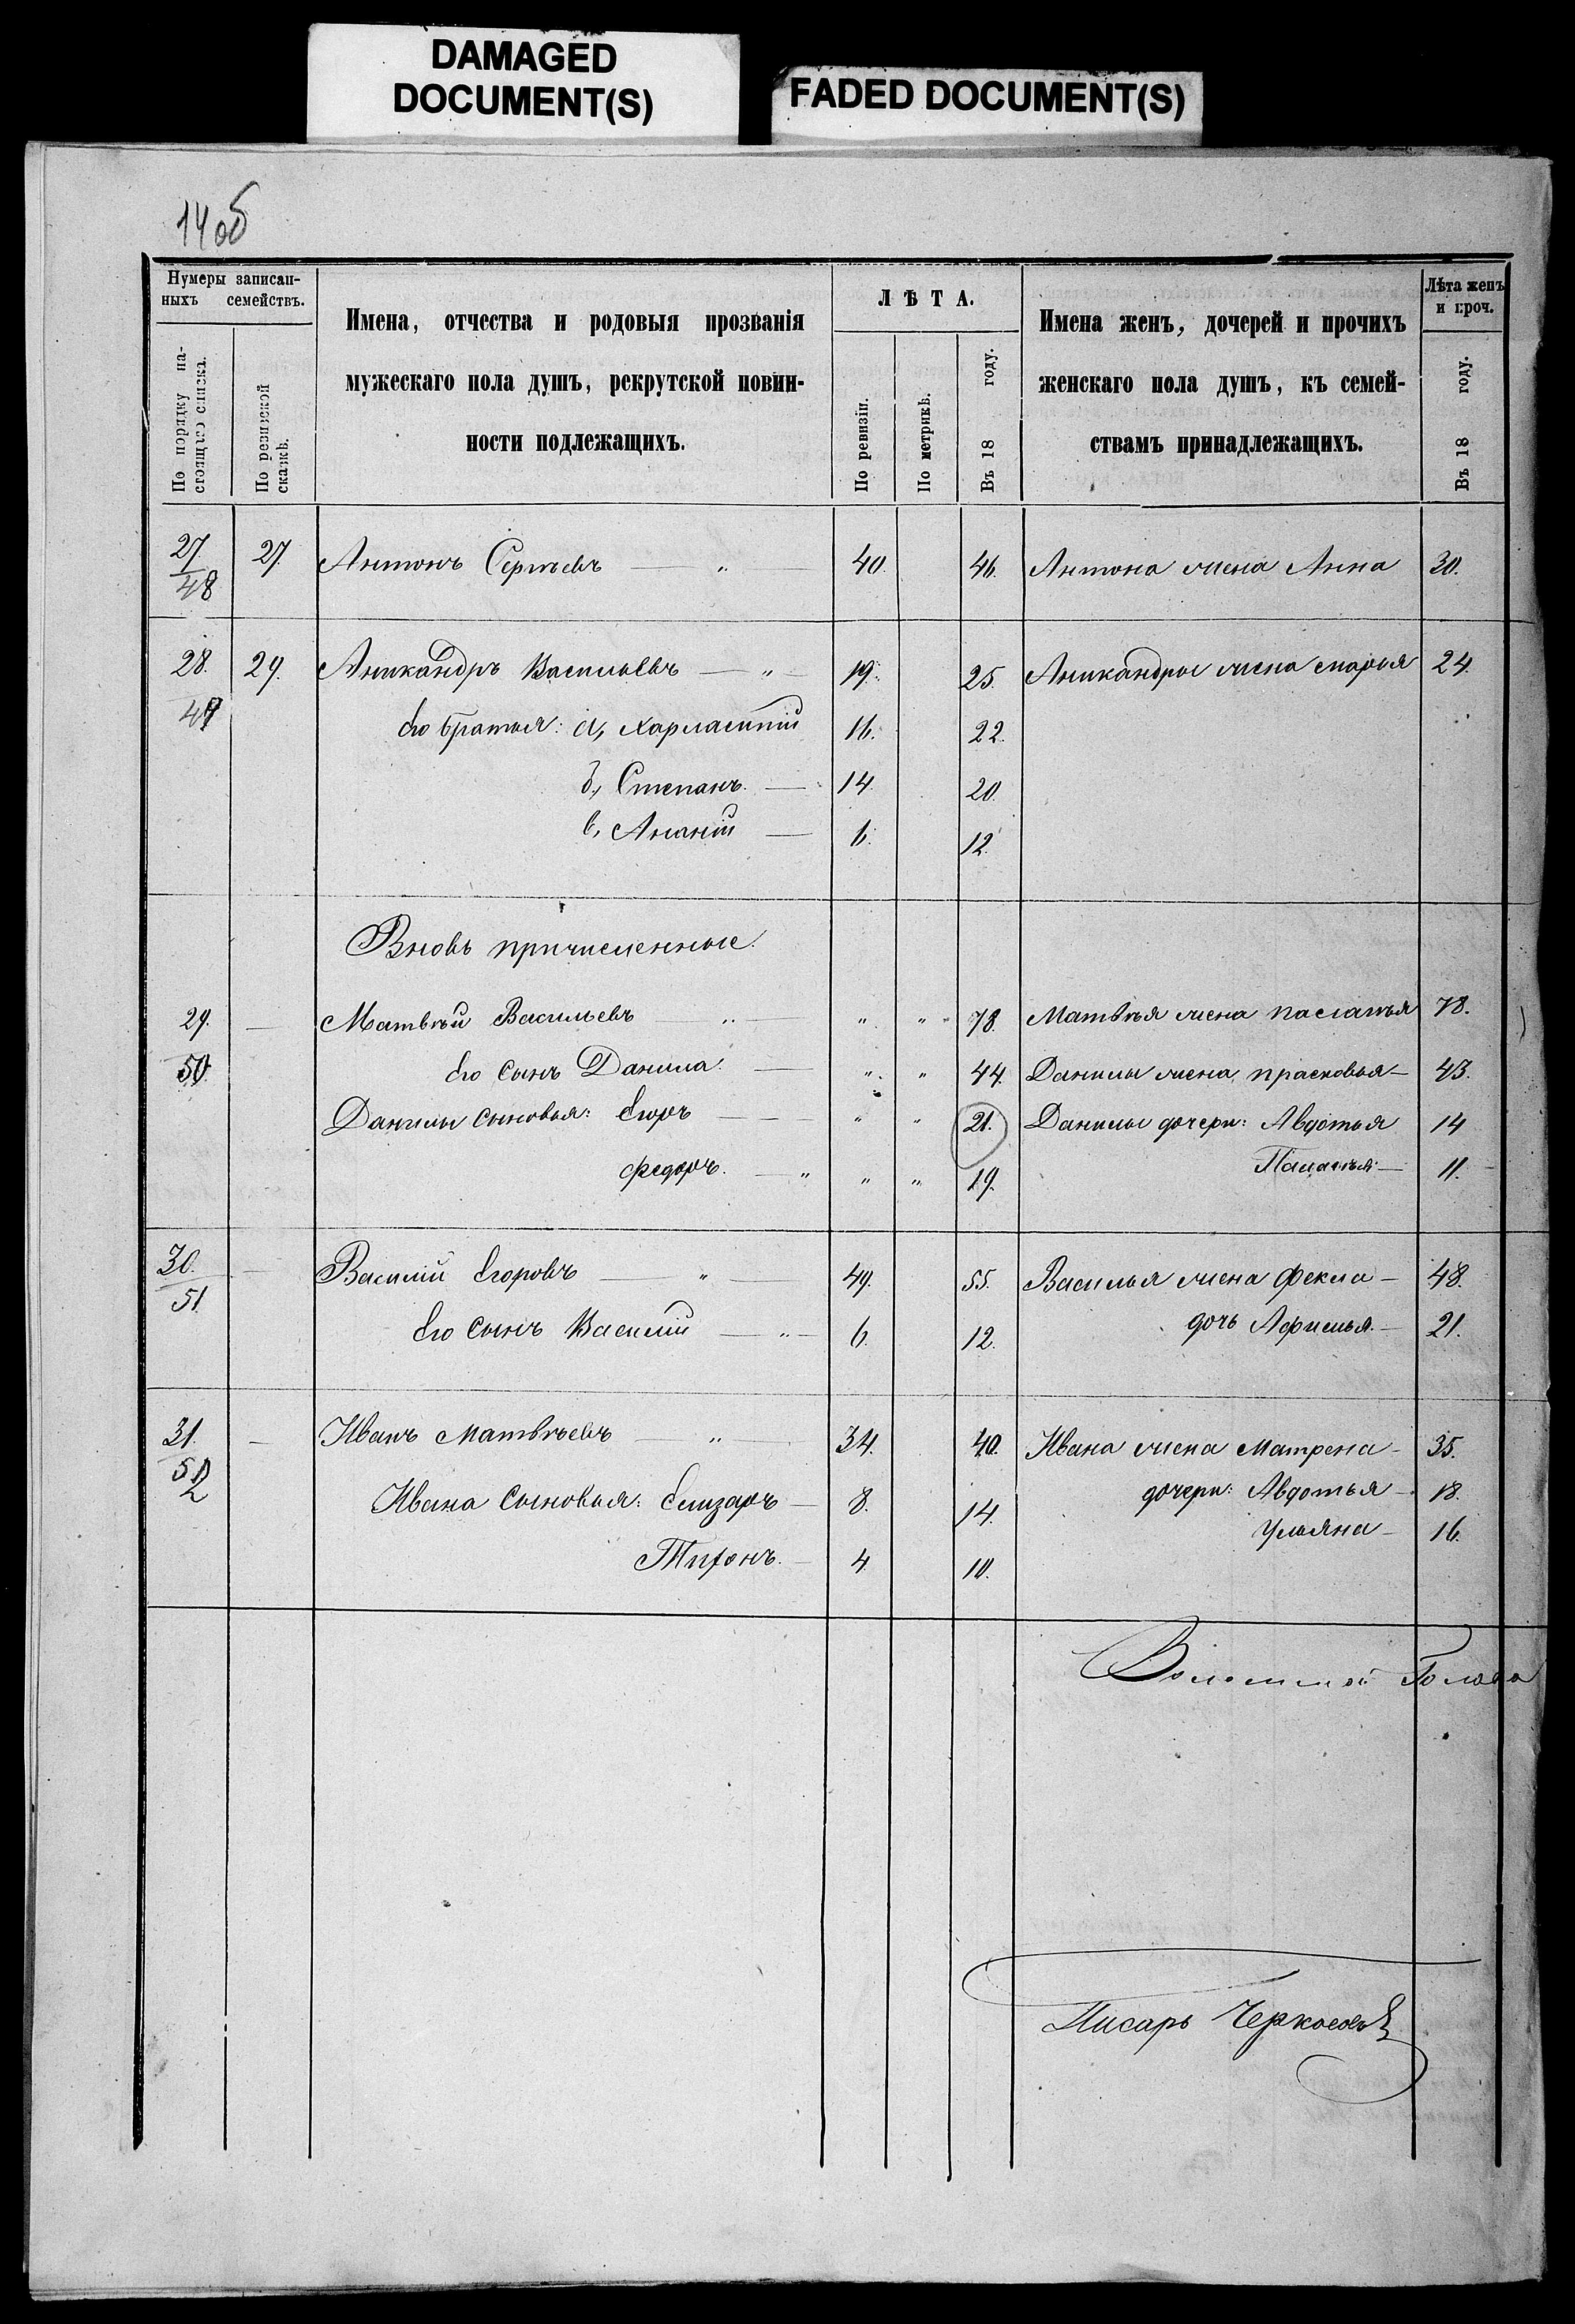 DAMAGED
DOCUMENT(S)
FADED DOCUMENT(S)
14 об
Нумеры записан-
ныхъ семействъ.
По порядку на-
стоящаго списка.
По ревизской
сказкѣ.
Имена, отчества и родовыя прозванія
мужескаго пола душъ, рекрутской повин-
ности подлежащихъ.
ЛѢТА.
По ревизіи.
По метрикѣ.
Въ 18 году.
Имена женъ, дочерей и прочихъ
женскаго пола душъ, къ семей-
ствамъ принадлежащихъ.
Лѣта женъ
и проч.
Въ 18 году.
27. 27. Антонъ Сергѣевъ — „ — 40. 46. Антона жена Анна 30.
48
28. 29. Аникандръ Васильевъ — „ — 19. 25. Аникандры жена Марья 24.
49
Его братья: а, Харлампій 16. 22.
б, Степанъ. — 14. 20.
в, Ананій — 6. 12.
Вновь причисленные.
29. — Матвѣй Васильевъ — „ — „ „ 78. Матвѣя жена Паланья 78.
50
Его сынъ Данила. — „ „ 44. Данилы жена Прасковья — 43.
Данилы сыновья: Егоръ — „ „ 21. Данилы дочери: Авдотья 14
Федоръ. — „ „ „ 19. Паланья — 11.
30. — Василій Егоровъ — „ — 49. 55. Василья жена Фекла — 48.
51.
Его сынъ Василій — „ — 6. 12. дочь Афимья. — 21.
31. — Иванъ Матвѣевъ — „ — 34. 40. Ивана жена Матрена — 35.
52
Ивана сыновья: Елизаръ — 8. 14. дочери: Авдотья — 18.
Ульяна — 16.
Тихонъ. — 4. 10.
Волостной Голова
Писарь Черкасовъ